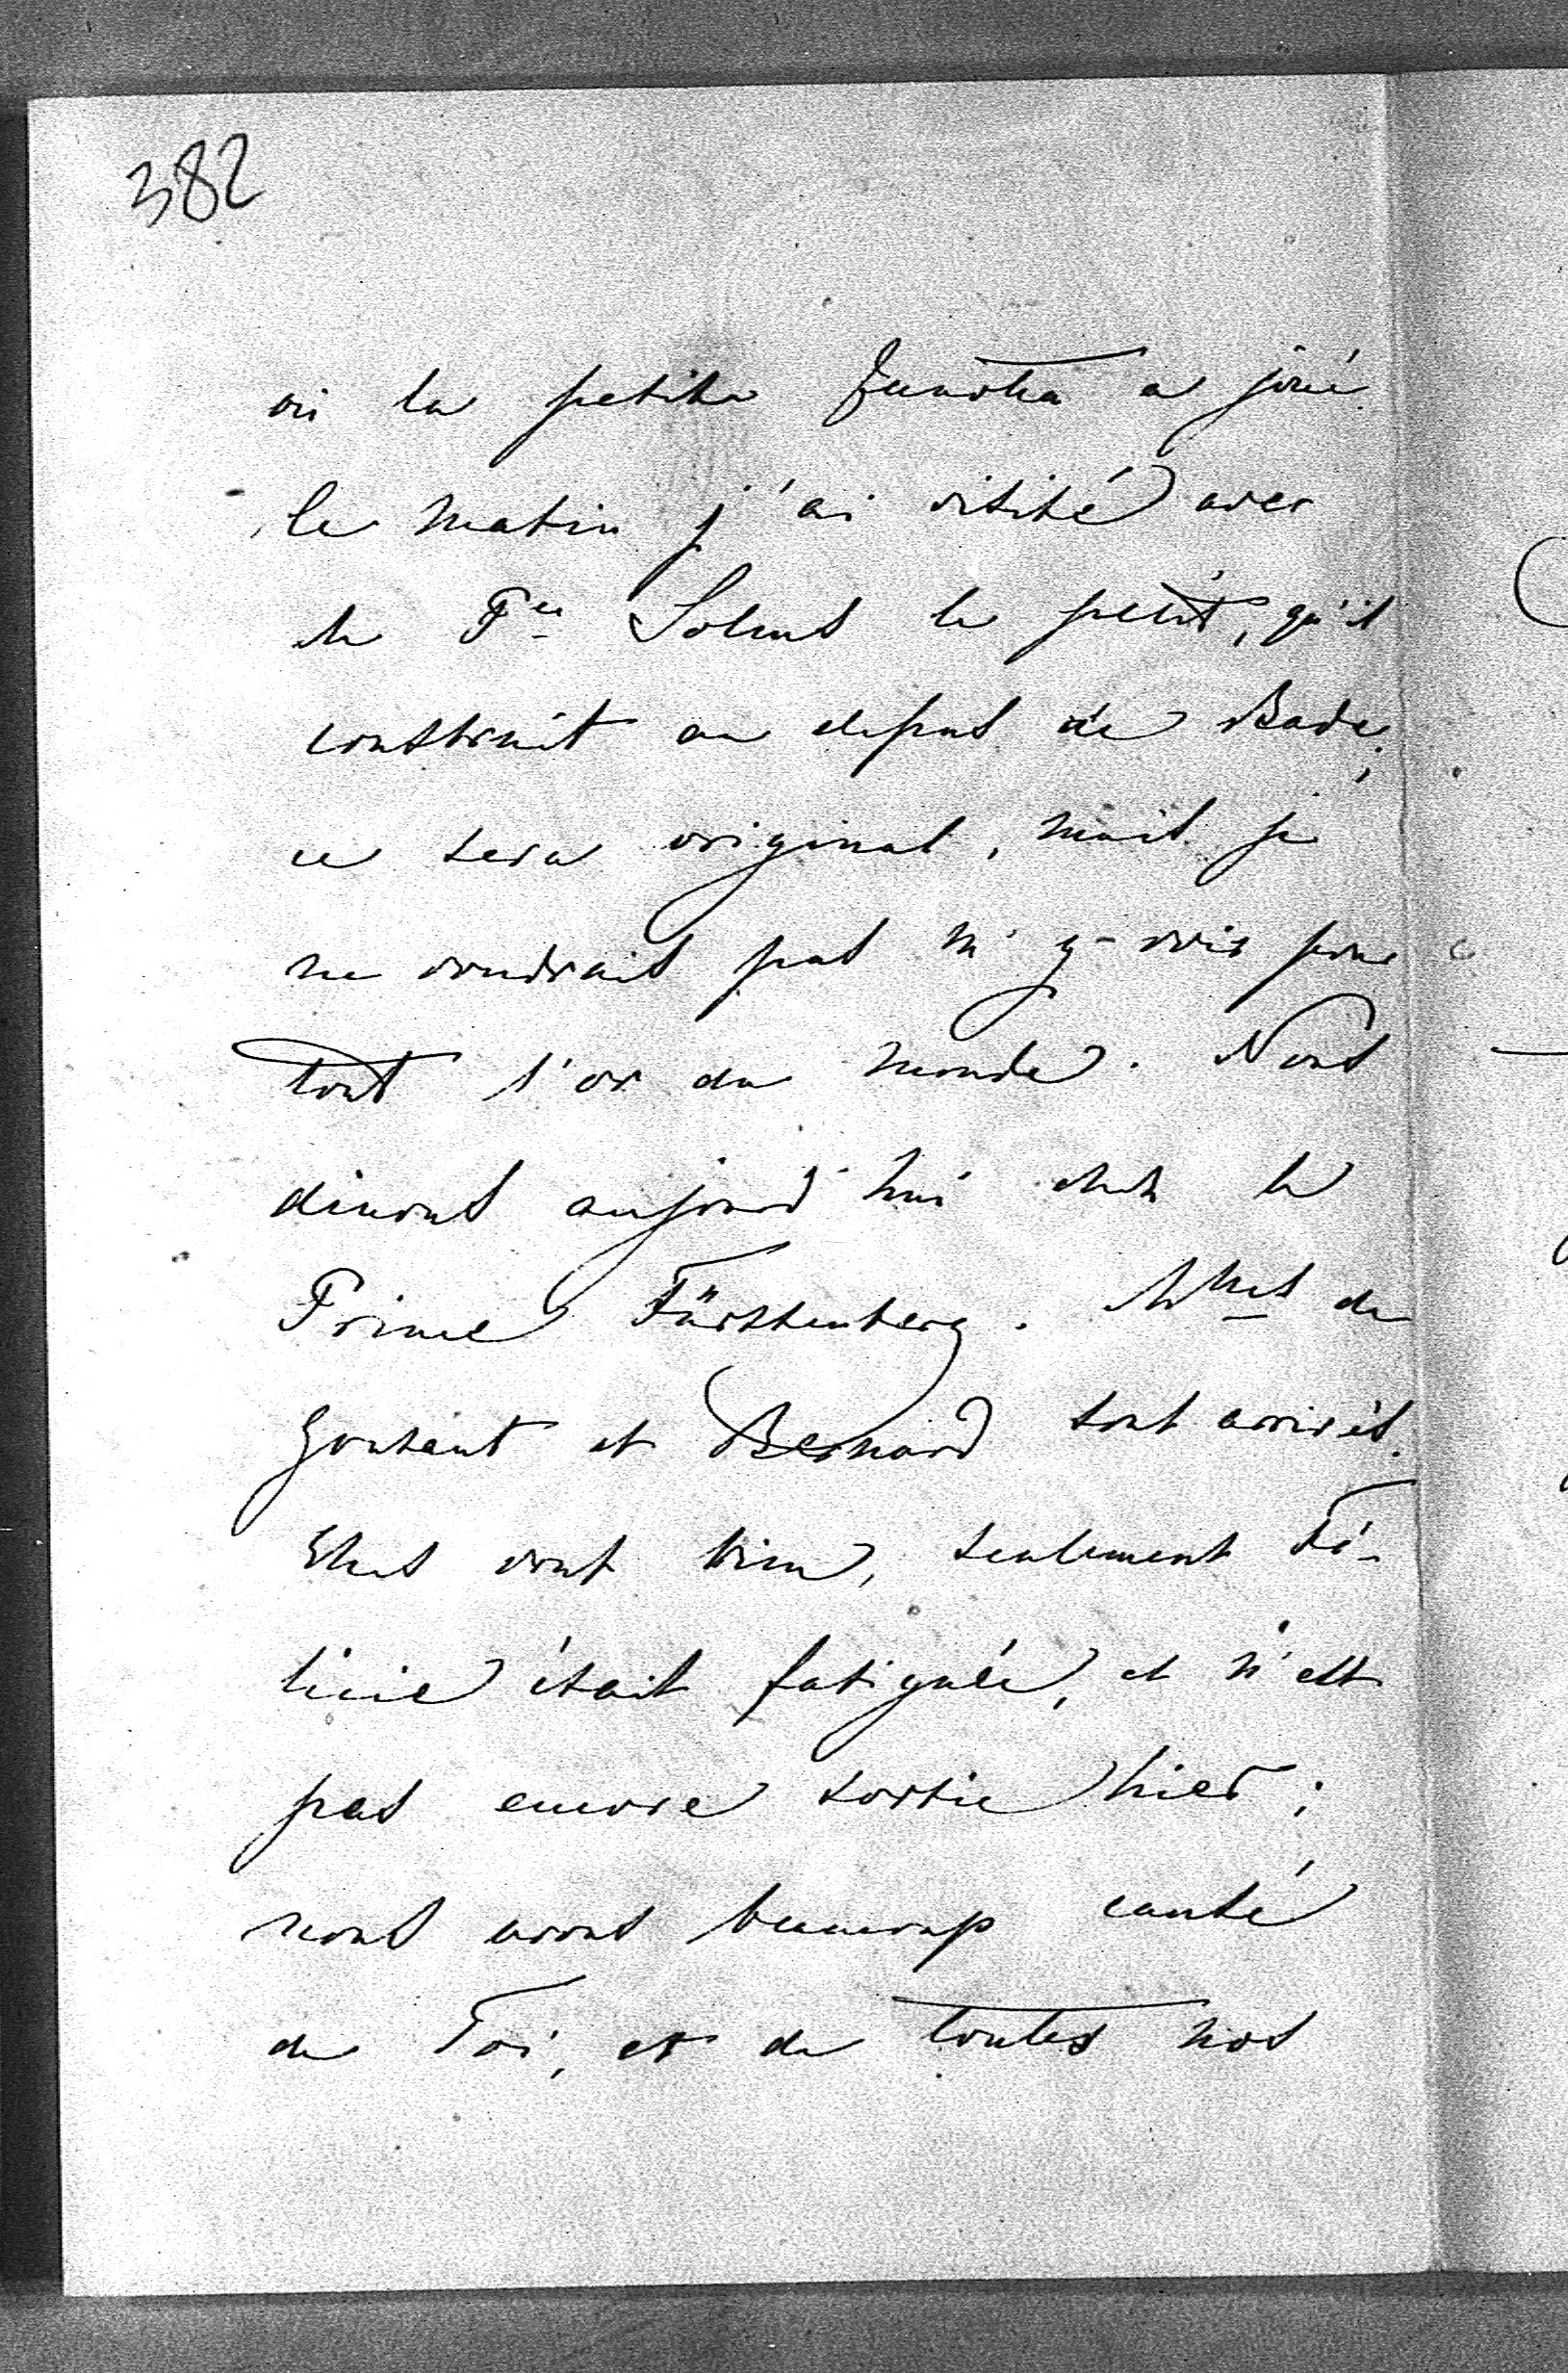 382
où la petite a joué
le matin j'ai visité avec
le Pce Solms le petit, qu'il
construit au dessus de Bade;
ce sera original, mais je
ne voudrais pas m'y voir pour
tout l'or du monde. Nous
dinons aujourd'hui chez le
Prince Fürstenberg. Mmes de
Gontaut et Bernard sont arrivés.
Elles vont bien, seulement Fé-
licie était fatiguée, et n'est
pas encore sortie hier;
nous avons beaucoup causé
de Toi, et de toutes nos